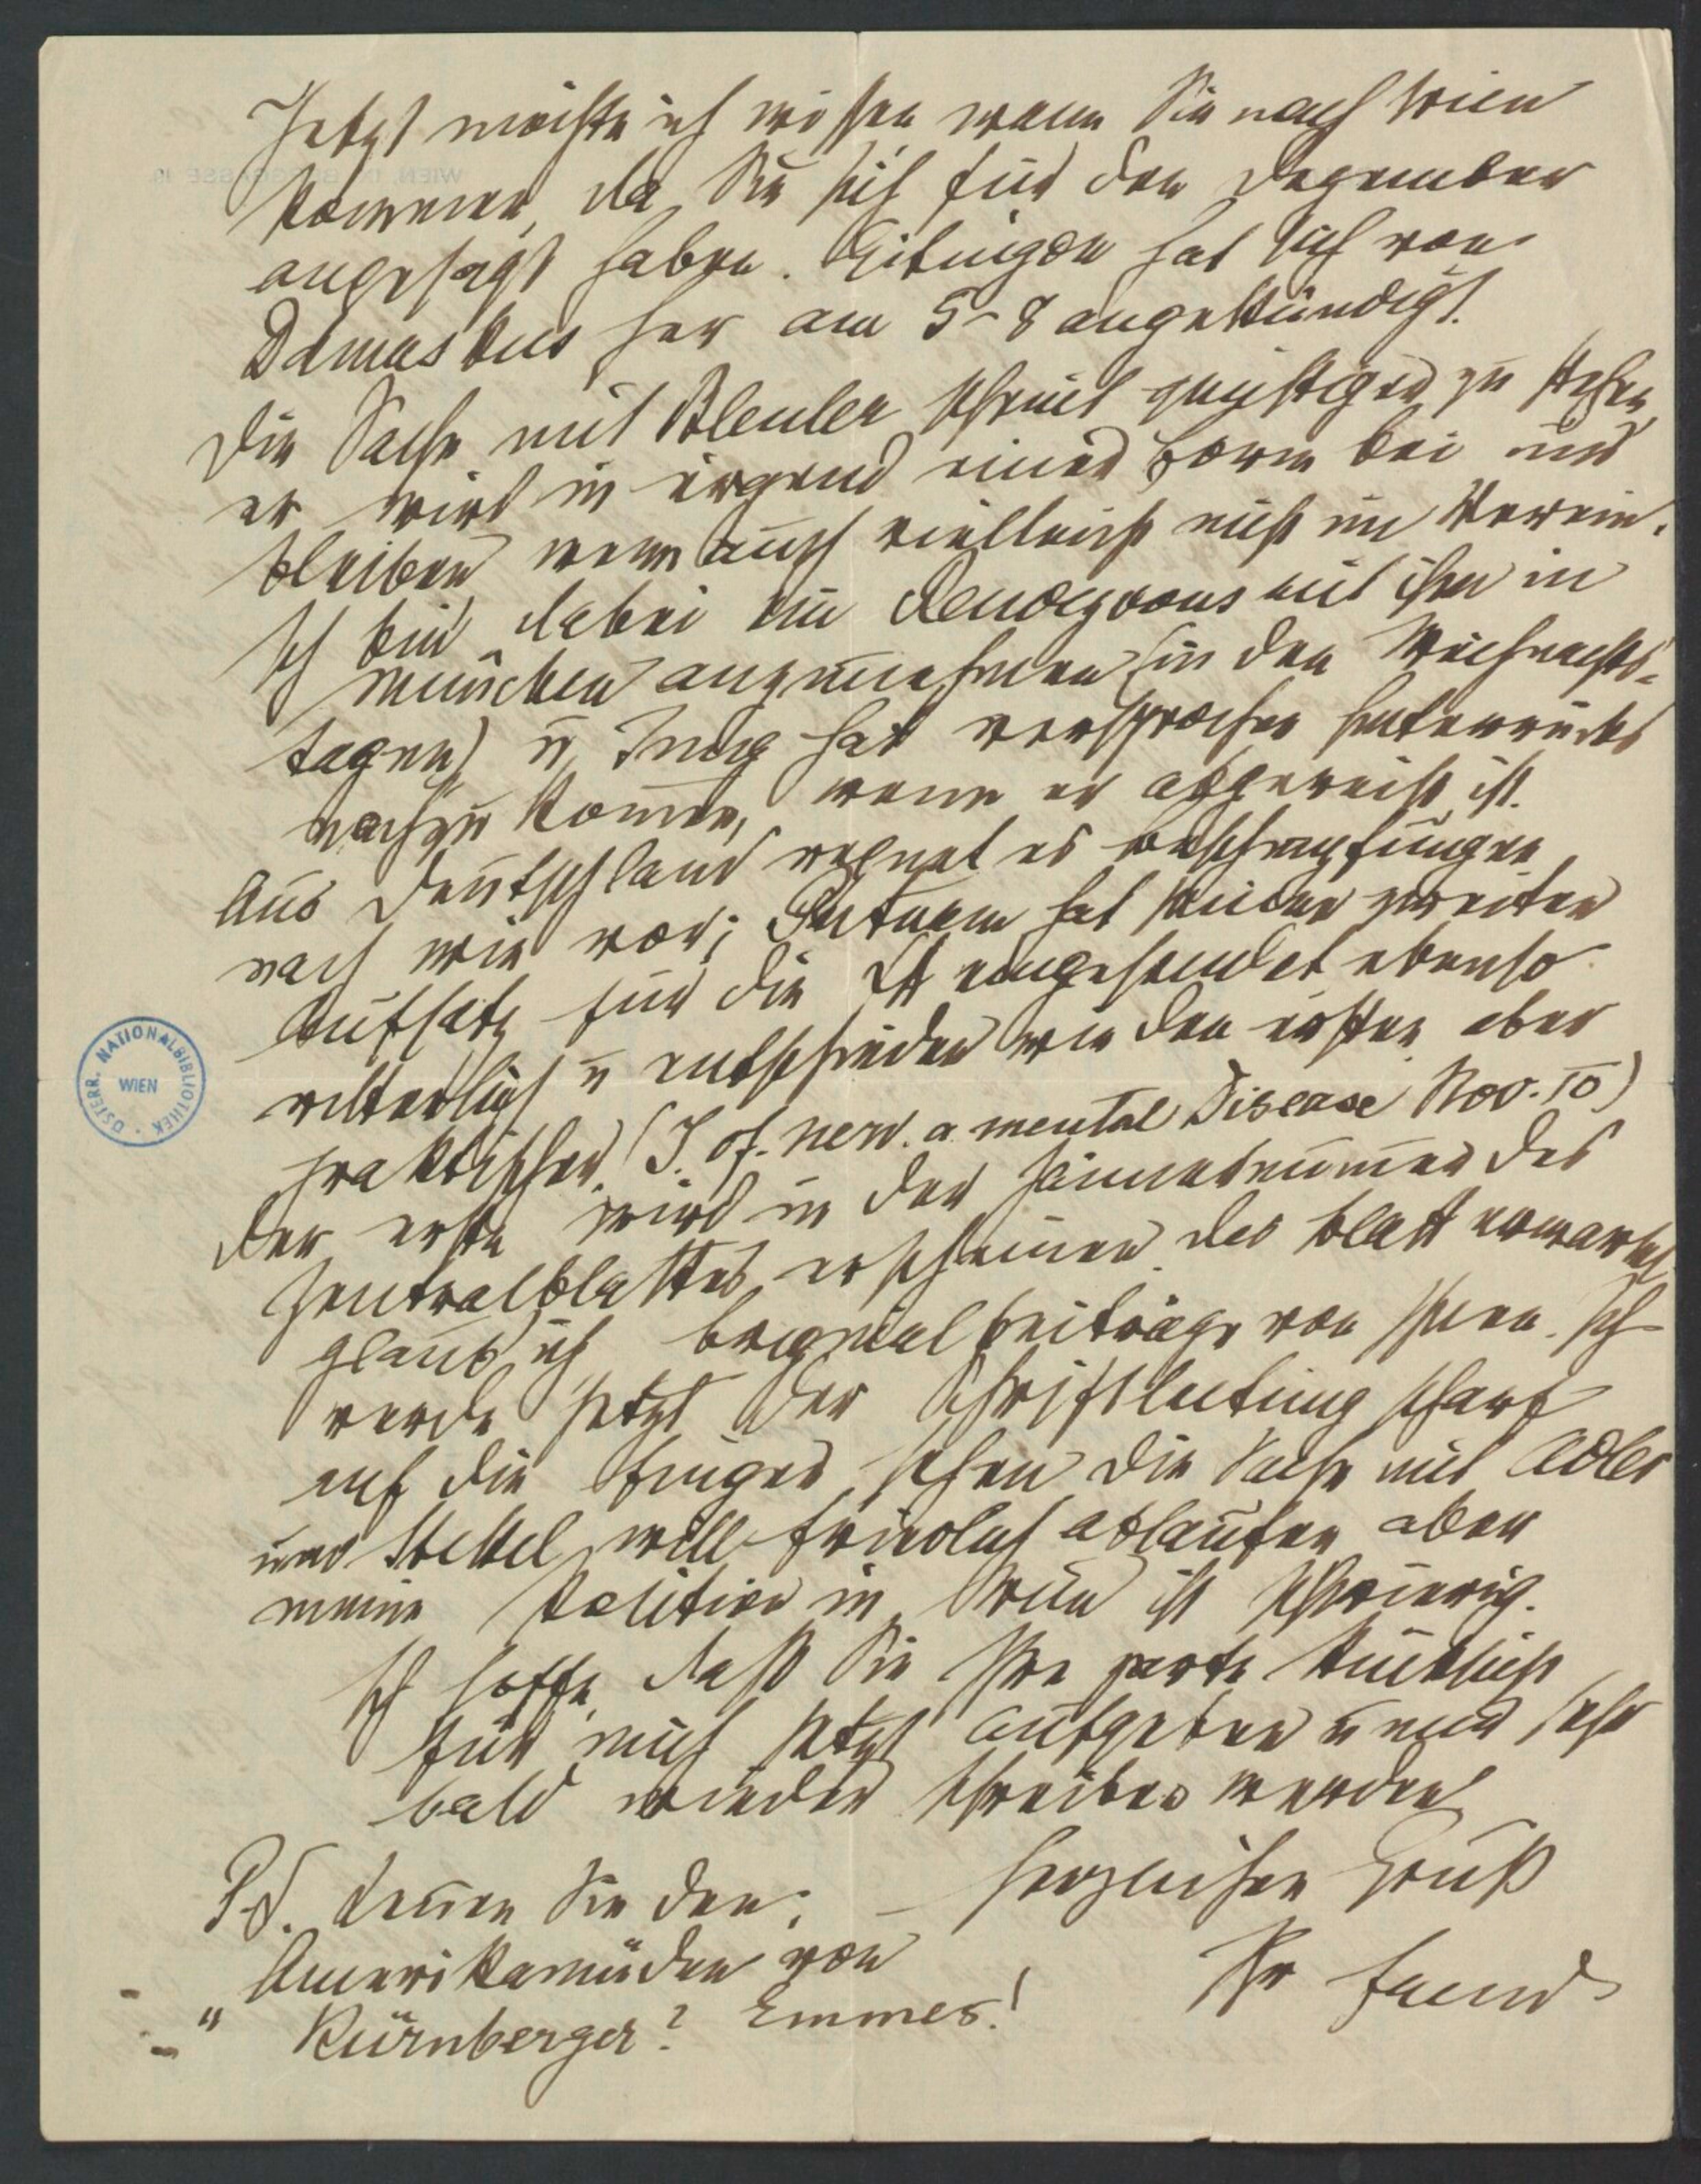 Jetzt möchte ich wissen wann Sie nach Wien
kommen, da Sie sich für den Dezember
angesagt haben. Eitingon hat sich von
Damaskus her am 5-8 angekündigt.
Die Sache mit Bleuler scheint günstiger zu stehen
er wird in irgend einer Form bei uns
bleiben wenn auch vielleicht nicht im Verein.
Ich bin dabei ein Rendezvous mit ihm in
München anzunehmen (in den Weihnachts-
tagen) u Jung hat versprochen hinterrücks
nachzukommen, wenn er abgereist ist.
Aus Deutschland regnet es Beschimpfungen
nach wie vor; Putnam hat seinen zweiten
Aufsatz für die eingesendet ebenso
ritterlich u entschieden wie den ersten aber
praktischer. (J. of. nerv. a mental Disease Nov. 10)
Der erste wird in der Jännernummer des
Zentralblattes erscheinen. Das Blatt erwartet
glaub ich Originalbeiträge von Ihnen. Ich
werde jetzt der Schriftleitung scharf
auf die Finger sehen die Sache mit Adler
und Stekel will friedlich ablaufen aber
meine Position in Wien ist schwierig.
Ich hoffe, daß Sie Ihre zarte Rücksicht
für mich jetzt aufgeben u mir sehr
bald wieder schreiben werden
Herzlichen Gruß
Ihr Freud
P.S. Kennen Sie den:
Amerikamüden von
" Kürnberger? Emmes!
ÖSTERR. NATIONALBIBLIOTHEK
WIEN